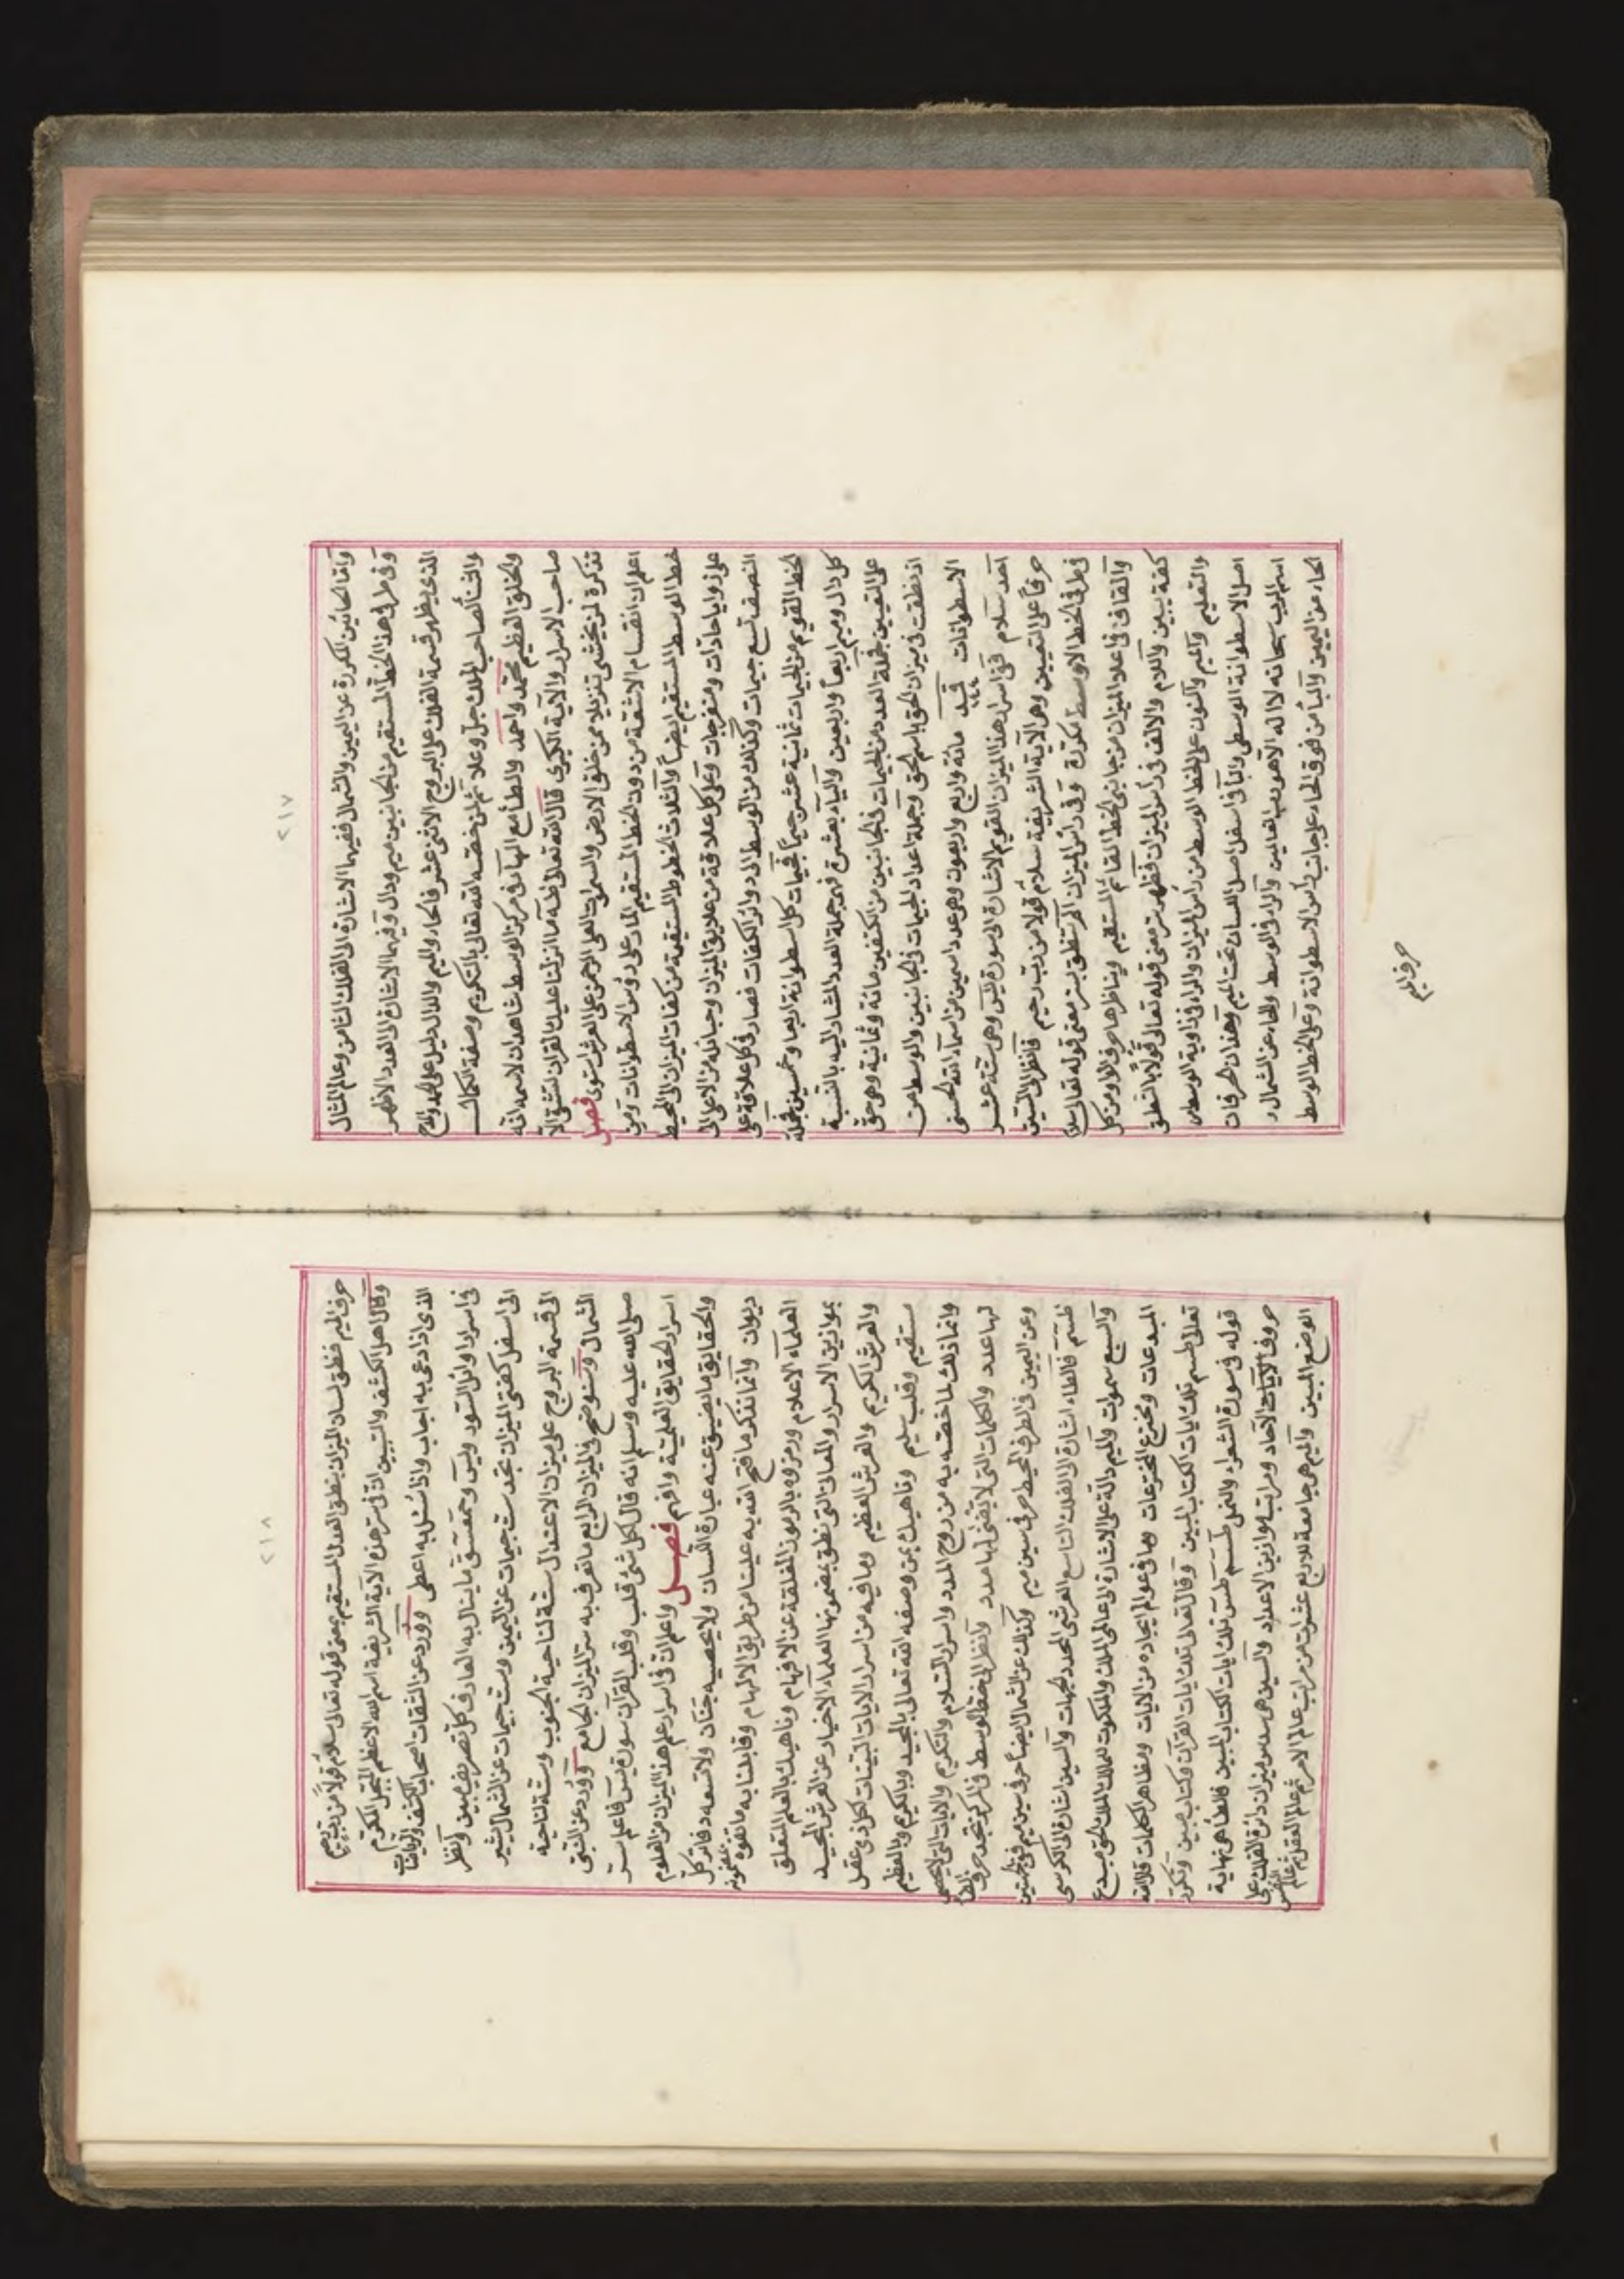 ٢١٧
وأما الحائين المذكورة عن اليمين والشمال ففيهما الاشارة الى الفلك الثامن وعالم المثال
وفى طرفى هذا الخط المستقيم من الجانبين ميم ودال وفيهما الاشارة الى العدد الاظهر
الذى يظهر قسمة الفلك على البروج الاثنى عشر فالحاء والميم والدال دليل على الحمد والمدح
والثنا لصاحب الملك جل وعلا ثم لمن خصه الله تعالى بالتكريم وصفة الكمال
والخلق العظيم محمد واحمد والطاء مع الهاء فى مركز الوسط شاهدان لاسمه انه
صاحب الاسرار والآية الكبرى قال الله تعالى طه ما انزلنا عليك القران لتشقى الا
تذكرة لمن يخشى تنزيلا ممن خلق الارض والسموات العلى الرحمن على العرش استوى فصل
اعلم ان انقسام الاشعة من دون الخط المستقيم المار على رؤس الاسطوانات ومن
خط الوسط المستقيم ايضا والثلاث الخطوط المستقيمة من كفات الميزان الى المحيط
على زوايا حادات ومنفرجات وعلى كل علاقة من علايق الميزان وحبائله من الاعلى الى
النصف تسع جيمات وكذلك من الوسط الى دوائر الكفات فصار فى كل علاقة على
الخط القويم من الجيمات ثمانية عشر جيما فجيمات كل اسطوانة اربعا وخمسين فجملة
كل دال وميم اربعا واربعين والياء بعشرة فهى جملة العدد المشار اليه بالنسبة
على التعيين فجملة العدد من الجيمات فى الجانبين من الكفتين مائة وثمانية وهى حق
اذ نطقت فى ميزان الحق باسم الحق وجملة اعداد الجيمات فى الجانبين والوسط من
الاسطوانات قسد مائة واربع واربعون وهى عدد اسمين من اسماء الله الحسنى
احد سلام ففى اسرار هذا الميزان القويم الاشارة الى سورة يس وهى ستة عشر
حرفا على التعيين وهى الآية الشريفة سلام قولا من رب رحيم فانظر الى السين
فى طرفى الخط الاوسط مكررة وفى دائر الميزان المركز تنطق بسر معنى قوله تعالى سلام
والقاف فى اعلا الميزان من جانبى الخط القائم المستقيم ويناظرها حرف الواو من كل
كفة يبين واللام والالف فى رأس الميزان فظهر سر معنى قوله تعالى قولا بالنطق
والتعليم والميم والنون على الخط الوسط من رأس الميزان والراء فى زاوية الوسط من
اصل الاسطوانة الوسطى والباء فى اسفل اصل اللسان تحت الميم وهذان الحرفان
اسم الرب سبحانه لا اله الا هو رب العالمين والراء فى الوسط والحاء عن الشمال و
الحاء عن اليمين والياء من فوق الحاء على جانب رأس الاسطوانة وعلى الخط الوسط
حرف الميم
٢١٨
حرف الميم فنطق لسان الميزان بنطق العدل المستقيم بمعنى قوله تعالى سلام قولا من رب رحيم
وقال اهل الكشف والتبيين ان فى سر هذه الآية الشريفة اسم الله الاعظم المبجل المكرم
الذى اذا دعى به اجاب واذا سئل به اعطى وورد عن الثقات اصحاب الكشف والرياضات
فى اسرار اوائل السور ويس وحمعسق ما ينال به العارف كل تصريف مبين وانظر
الى اسفل كفتى الميزان تجد ست جيمات عن اليمين وست جيمات عن الشمال يشير
الى قسمة البروج على ميزان الاعتدال ستة لناحية الجنوب وستة لناحية
الشمال وسنوضح فى الميزان الرابع ما تعرف به سر الميزان الجامع وورد عن النبى
صلى الله عليه وسلم انه قال لكل شئ قلب وقلب القرآن سورة يس فاعلم ستر
اسرار الحقايق العلمية وافهم فصل واعلم ان فى اسرار علم هذا الميزان من العلوم
والحقايق ما يضيق عنه عبارة اللسان ولا يحصيه جنان ولا تسعه دفاتر كل
ديوان وانما نذكر ما فتح الله به علينا من طريق الالهام وقابلنا به ما تفوه بمضمونه
العلماء الاعلام ورمزوه بالرموز المغلقة عن الافهام وناهيك بالعلم المتعلق
بموازين الاسرار والمعانى التى نطق بمضمونها العلماء الاخيار عن العرش المجيد
والعرش الكريم والعرش العظيم وما فيه من اسرار الايات البينات لكل ذى عقل
مستقيم وقلب سليم وناهيك بمن وصفه الله تعالى بالمجيد وبالكريم وبالعظيم
وانما ذلك لما خصه به من روح المدد واسرار السلام والتكريم والايات التى لا يحصى
لها عدد والكلمات التى لا يقضى لها مدد وانظر الى خط الوسط فى المركز تجد حرف الطاء
وعن اليمين فى الطرف المحيط حرفى سين ميم وكذلك عن الشمال ايضا حرفى سين ميم فهى طسين
طسم فالطاء اشارة الى الفلك التاسع العرشى المحدد للجهات والسين اشارة الى الكرسى
والسبع سموات والميم دالة على الاشارة الى عالمى الملك والملكوت للمالك الملك الحق مبدع
المبدعات ومخترع المخترعات وما فى عوالم ايجاده من الايات ومظاهر الكلمات قال الله
تعالى طسم تلك ايات الكتاب المبين وقال تعالى تلك ايات القرآن وكتاب مبين وتكرر
قوله فى سورة الشعرا والنمل طسم طس تلك ايات الكتاب المبين فالطاء هى نهاية
حروف الآحاد ومراتب موازين الاعداد والسين هى سدس ميزان دائرة الفلك على
الوضع المبين والميم هى جامعة للاربع عشرات من مراتب عالم الامر ثم عالم العقل ثم عالم النفس